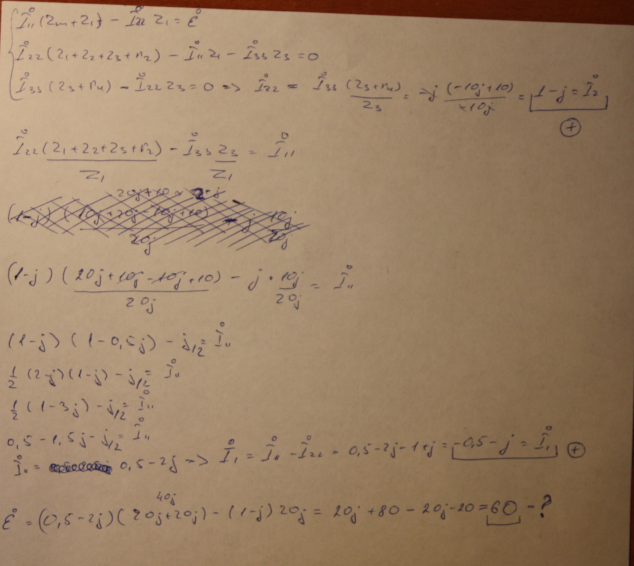 İ₁₁(Zm+Z₁) - İ₂₂ Z₁ = Ė
İ₂₂(Z₁+Z₂+Z₃+r₂) - İ₁₁Z₁ - İ₃₃Z₃ = 0
İ₃₃(Z₃+r₄) - İ₂₂Z₃ = 0 => İ₂₂ = İ₃₃ (Z₃+r₄)/Z₃ = -j (-10j+10)/-10j = 1-j = İ₂
(+)
İ₂₂(Z₁+Z₂+Z₃+r₂)/Z₁ - İ₃₃Z₃/Z₁ = İ₁₁
(1-j)(20j+10j-10j+10)/20j - j·10j/20j = İ₁₁
(1-j)(1-0,5j) - j/2 = İ₁₁
1/2 (2-j)(1-j) - j/2 = İ₁₁
1/2 (1-3j) - j/2 = İ₁₁
0,5-1,5j-j/2 = İ₁₁
İ₁₁ = 0,5-2j => İ₁ = İ₁₁ - İ₂₂ = 0,5-2j-1+j = -0,5-j = İ₁ (+)
40j
Ė = (0,5-2j)(20j+20j) - (1-j)20j = 20j+80-20j-20 = 60 - ?